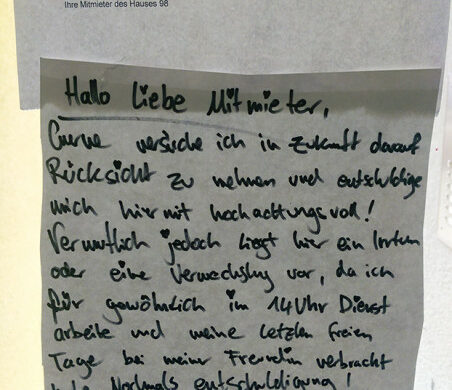 Ihre Mitmieter des Hauses 98
Hallo Liebe Mitmieter,
Gerne versuche ich in Zukunft darauf
Rücksicht zu nehmen und entschuldige
mich hiermit hochachtungsvoll!
Vermutlich jedoch liegt hier ein Irrtum
oder eine Verwechslung vor, da ich
für gewöhnlich im 14 Uhr Dienst
arbeite und meine letzten freien
Tage bei meiner Freundin verbracht
habe. Nochmals entschuldigung!